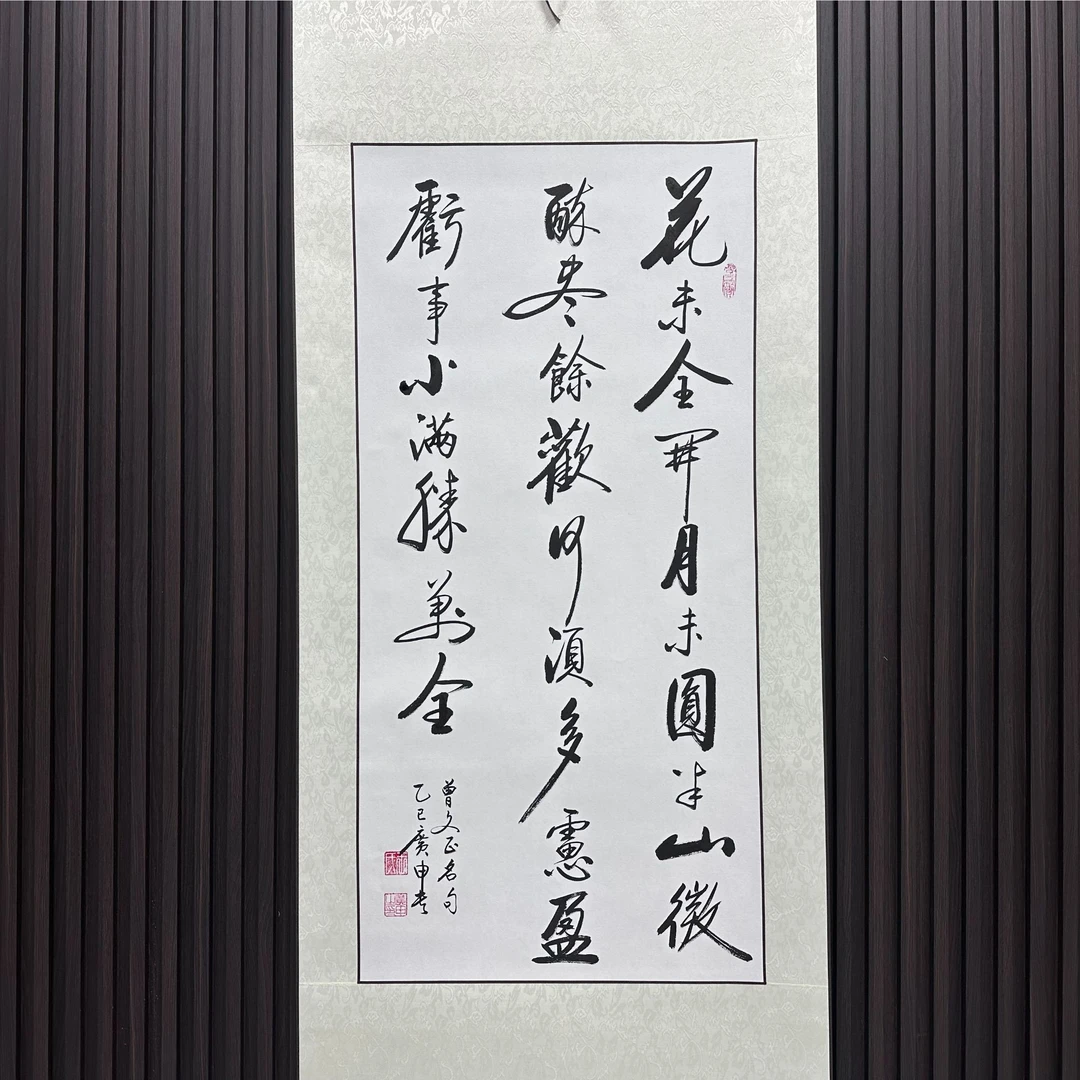 花未全開月未圓半山微
醉尽餘歡何須多慮盈
虧事小滿勝萬全
曾文正名句
乙巳廣申书